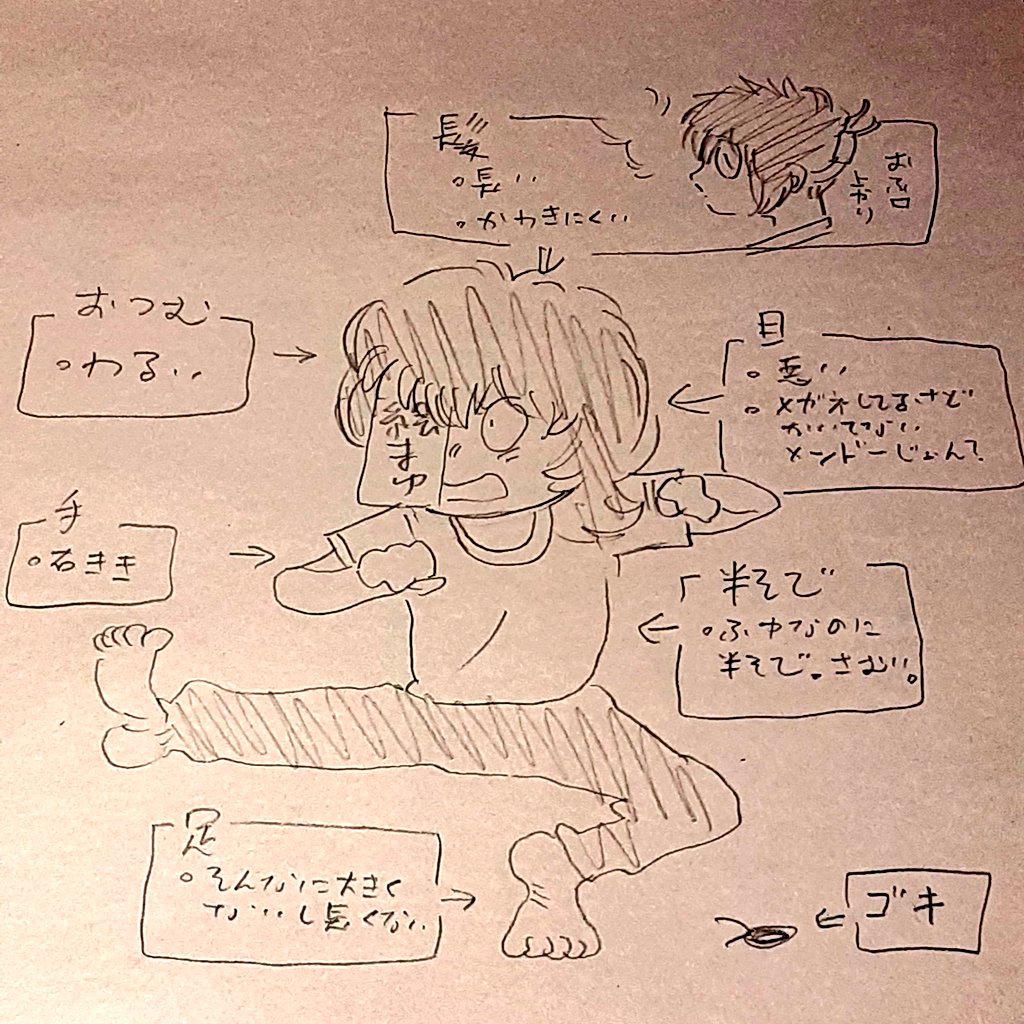 髪
。長い
。かわきにくい
おふロ
上がり
おつむ
。わるい
目
。悪い
。メガネしてるけど
かいてない
メンドーじゃんて
絵
まゆ
手
。右きき
半そで
。ふゆなのに
半そで。さむい。
足
。そんなに大きく
ないし長くない
ゴキ